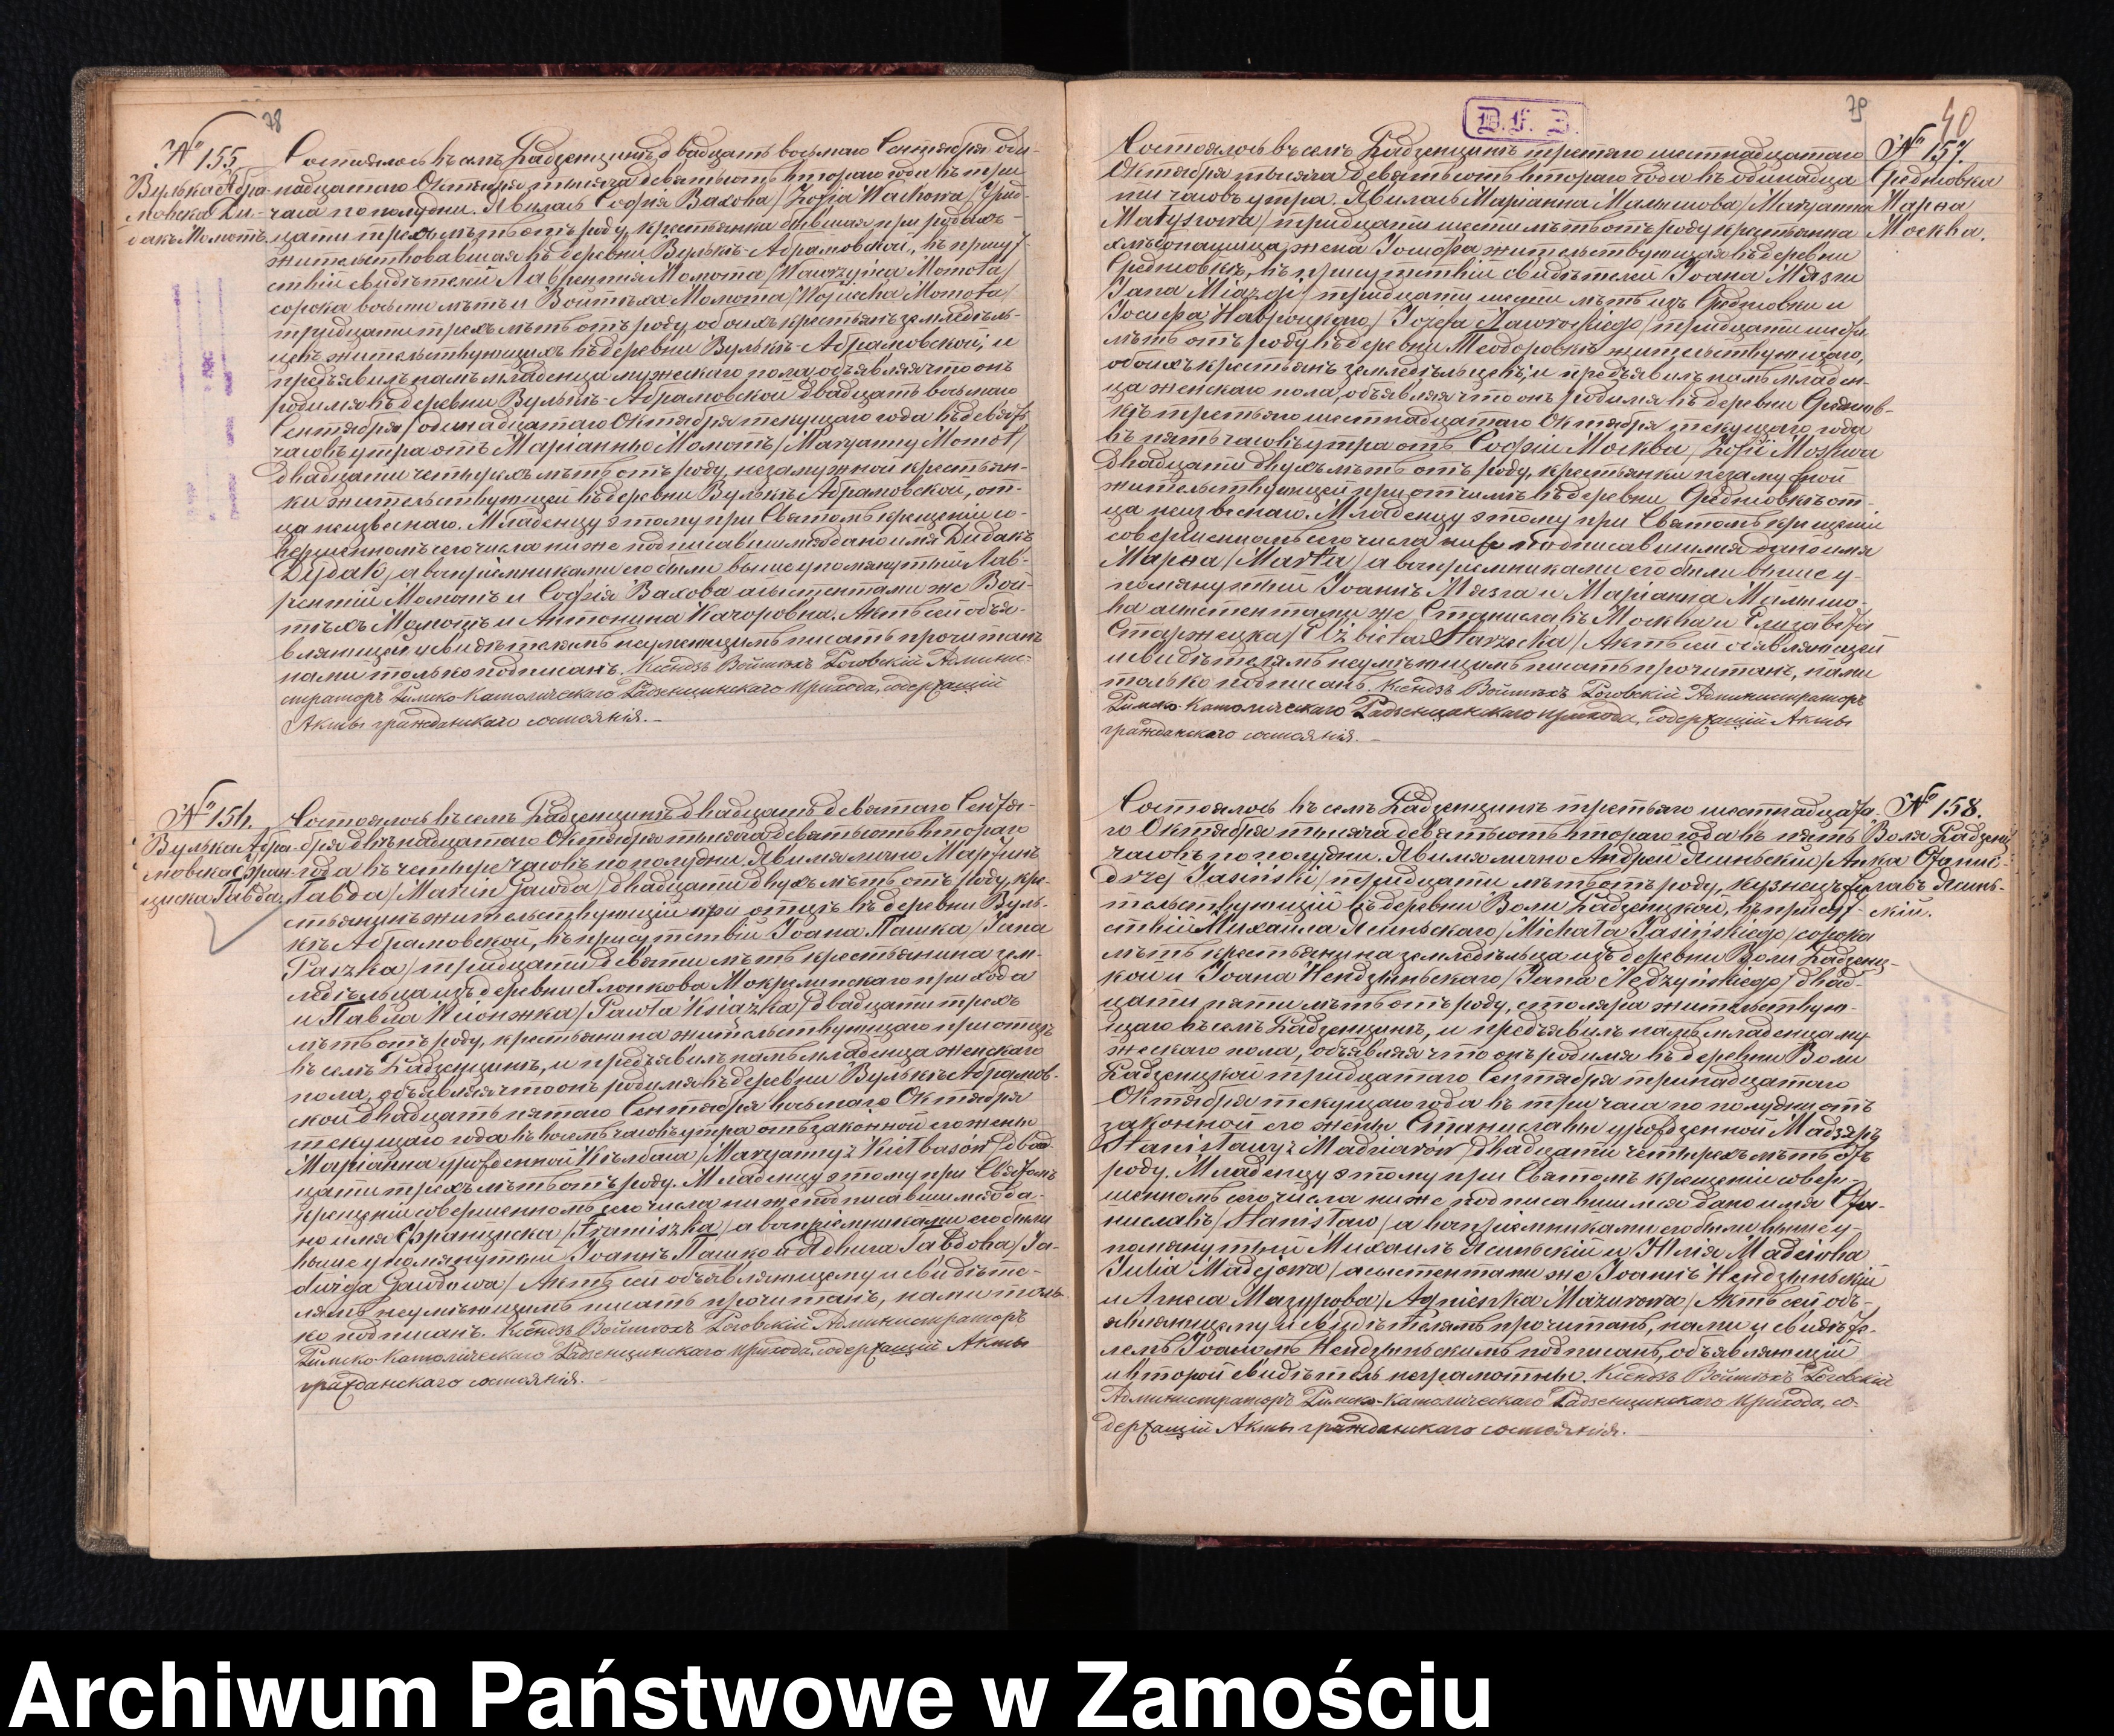 78
№ 155.
Вулька Абра-
мовска Ди-
дакъ Момотъ.
Состоялось въ семъ Радзенцинѣ двадцать восьмаго Сентября оди-
надцатаго Октября тысяча девятьсотъ втораго года въ три
часа по полудни. Явилась Софія Вахова /Zofia Wachowa/ трид-
цати трехъ лѣтъ отъ роду, крестьянка бывшая при родахъ
жительствовавшая въ деревни Вулькѣ-Абрамовской, въ присут-
ствіи свидѣтелей Лаврентія Момота /Wawrzyńca Momota/
сорока восьми лѣтъ и Войтѣха Момота /Wojciecha Momota/
тридцати трехъ лѣтъ отъ роду, обоихъ крестьянъ земледѣль-
цевъ жительствующихъ въ деревни Вулькѣ-Абрамовской, и
предъявилъ намъ младенца мужескаго пола, объявляя что онъ
родился въ деревни Вулькѣ-Абрамовской двадцать восьмаго
Сентября /одинадцатаго Октября текущаго года въ девять
часовъ утра отъ Маріанны Момотъ /Maryanny Momot/
двадцати четырехъ лѣтъ отъ роду, незамужной крестьян-
ки жительствующей въ деревни Вулькѣ Абрамовской, от-
ца неизвеснаго. Младенцу этому при Святомъ крещеніи со-
вершенномъ сего числа ниже подписавшимся дано имя Дидакъ
Dydak, а воспріемниками его были выше упомянутый Лав-
рентій Момотъ и Софія Вахова асыстентами же Вой-
тѣхъ Момотъ и Антонина Качоровна. Актъ сей объя-
вляющей и свидѣтелямъ неумеющимъ писать прочитанъ
нами только подписанъ. Ксендзъ Войтѣхъ Роговскій Админис-
страторъ Римско-Католическаго Радзенцинскаго прихода, содержащій
Акты гражданскаго состоянія.
№ 156.
Вулька Абра-
мовска Фран-
циска Гавда
Состоялось въ семъ Радзенцинѣ двадцать девятаго Сентя-
бря двѣнадцатаго Октября тысяча девятьсотъ втораго
года въ четыре часовъ по полудни. Явился лично Мартинъ
Гавда /Marcin Gawda/ двадцати двухъ лѣтъ отъ роду, кре-
стьянинъ жительствующій при отцѣ въ деревни Вуль-
кѣ Абрамовской, въ присутствіи Іоана Пашка /Jana
Paszka/ тридцати девяти лѣтъ крестьянина зем-
ледѣльца изъ деревни Хлопкова Мокрелипскаго прихода
и Павла Ксіонжка /Pawła Książka/ двадцати трехъ
лѣтъ отъ роду, крестьянина жительствующаго при отцѣ
въ семъ Радзенцинѣ, и предъявилъ намъ младенца женскаго
пола, объявляя что онъ родился въ деревни Вулькѣ Абрамов-
ской двадцать пятаго Сентября восьмаго Октября
текущаго года въ восемь часовъ утра отъ законной его жены
Маріанна урожденной Кѣлбаса /Maryanny z Kiełbasów/ двад-
цати трехъ лѣтъ отъ роду. Младенцу этому при Святомъ
крещеніи совершенномъ сего числа ниже подписавшимся да-
но имя Франциска /Franciszka/ а воспріемниками его были
выше упомянутый Іоаннъ Пашко и Ядвига Гавдова /Ja-
dwiga Gawdowa/ Актъ сей объявляющему и свидѣте-
лямъ неумѣющимъ писать прочитанъ, нами толь-
ко подписанъ. Ксендзъ Войтѣхъ Роговскій Администраторъ
Римско-Католическаго Радзенцинскаго прихода, содержащій Акты
гражданскаго состоянія.
D. F. Z.
79
40
№ 157.
Фредновка
Марта
Москва.
Состоялось въ семъ Радзенцинѣ третяго шестнадцатаго
Октября тысяча девятьсотъ втораго года въ одинадца
ти часовъ утра. Явилась Маріанна Малышова /Maryanna
Małyszowa/ тридцати шести лѣтъ отъ роду крестьянка
хлѣбопашица жена Іосифа жительствующая въ деревни
Фредновкѣ, въ присутствіи свидѣтелей Іоана Мязги
/Jana Miazgi/ тридцати шести лѣтъ изъ Фредновки и
Іосифа Навроцкаго /Józefa Nawrockiego/ тридцати шести
лѣтъ отъ роду въ деревни Теодоровкѣ жительствующаго,
обоихъ крестьянъ земледѣльцевъ, и предъявилъ намъ младен-
ца женскаго пола, объявляя что онъ родился въ деревни Фреднов-
кѣ третьяго шестнадцатаго Октября текущаго года
въ пять часовъ утра отъ Софіи Москва /Zofii Moskwa
двадцати двухъ лѣтъ отъ роду, крестьянки незамужной
жительствующей при отчимѣ въ деревни Фредновкѣ от-
ца неизвеснаго. Младенцу этому при Святомъ крещеніи
совершенномъ сего числа ниже подписавшимся дано имя
Марта /Marta/ а воспріемниками его были выше у-
помянутый Іоаннъ Мязга и Маріанна Малышо-
ва асыстентами же Станиславъ Москва и Елизавета
Старжецка /Elżbieta Starzecka/ Актъ сей объявляющей
и свидѣтелямъ неумѣющимъ писать прочитанъ, нами
только подписанъ. Ксендзъ Войтѣхъ Роговскій Администраторъ
Римско-Католическаго Радзенцинскаго прихода, содержащій Акты
гражданскаго состоянія.
№ 158.
Воля Радзенц-
Станис-
лавъ Ясинь-
скій.
Состоялось въ семъ Радзенцинѣ третьяго шестнадцата-
го Октября тысяча девятьсотъ втораго года въ пять
часовъ по полудни. Явился лично Андрей Ясиньскій /An-
drzej Jasiński/ тридцати лѣтъ отъ роду, кузнецъ жи-
тельствующій въ деревни Воли Радзенцкой, въ присут-
ствіи Михаила Ясиньскаго /Michała Jasińskiego/ сорока
лѣтъ крестьянина земледѣльца изъ деревни Воли Радзенц-
кой и Іоана Нендзыньскаго /Jana Nędzyńskiego/ двад-
цати пяти лѣтъ отъ роду, столяра жительствую-
щаго въ семъ Радзенцинѣ, и предъявилъ намъ младенца му-
жескаго пола, объявляя что онъ родился въ деревни Воли
Радзенцкой тридцатаго Сентября тринадцатаго
Октября текущаго года въ три часа по полудни отъ
законной его жены Станиславы урожденной Мадзяръ
Stanisławy z Madziarów двадцати четырехъ лѣтъ отъ
роду. Младенцу этому при Святомъ крещеніи совер-
шенномъ сего числа ниже подписавшимся дано имя Ста-
ниславъ /Stanisław/ а воспріемниками его были выше у-
помянутый Михаилъ Ясиньскій и Юлія Мадеіова
Julia Madejowa/ асыстентами же Іоаннъ Нендзыньскій
и Агнеса Мазурова /Agnieszka Mazurowa/ Актъ сей объ-
являющему и свидѣтелямъ прочитанъ, нами и свидѣте-
лемъ Іоаномъ Нендзыньскимъ подписанъ, объявляющій
и второй свидѣтель неграмотны. Ксендзъ Войтѣхъ Роговскій
Администраторъ Римско-Католическаго Радзенцинскаго прихода, со-
держащій Акты гражданскаго состоянія.
Archiwum Państwowe w Zamościu